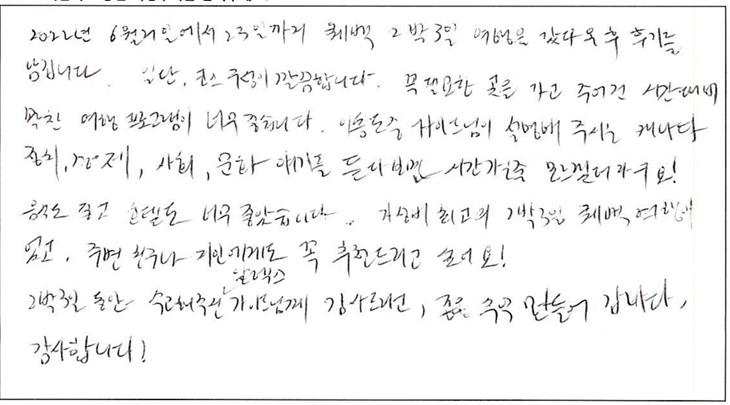 2022년 6월21일에서 23일까지 퀘벡 2박3일 여행을 갔다온 후 후기를
남깁니다. 일단, 코스 구성이 깔끔합니다. 꼭 필요한 곳을 가고 주어진 시간대비
꽉찬 여행 프로그램이 너무 좋습니다. 이동도중 가이드님이 설명해 주시는 캐나다
정치, 경제, 사회, 문화 얘기를 듣다보면 시간가는줄 모르겠더라구요!
음식도 좋고 호텔도 너무 좋았습니다. 가성비 최고의 2박3일 퀘벡여행이
였고, 주변 친구나 지인에게도 꼭 추천드리고 싶어요!
알렉스
2박3일 동안 수고해주신 가이드님께 감사드리며, 좋은 추억 만들어 갑니다,
감사합니다!